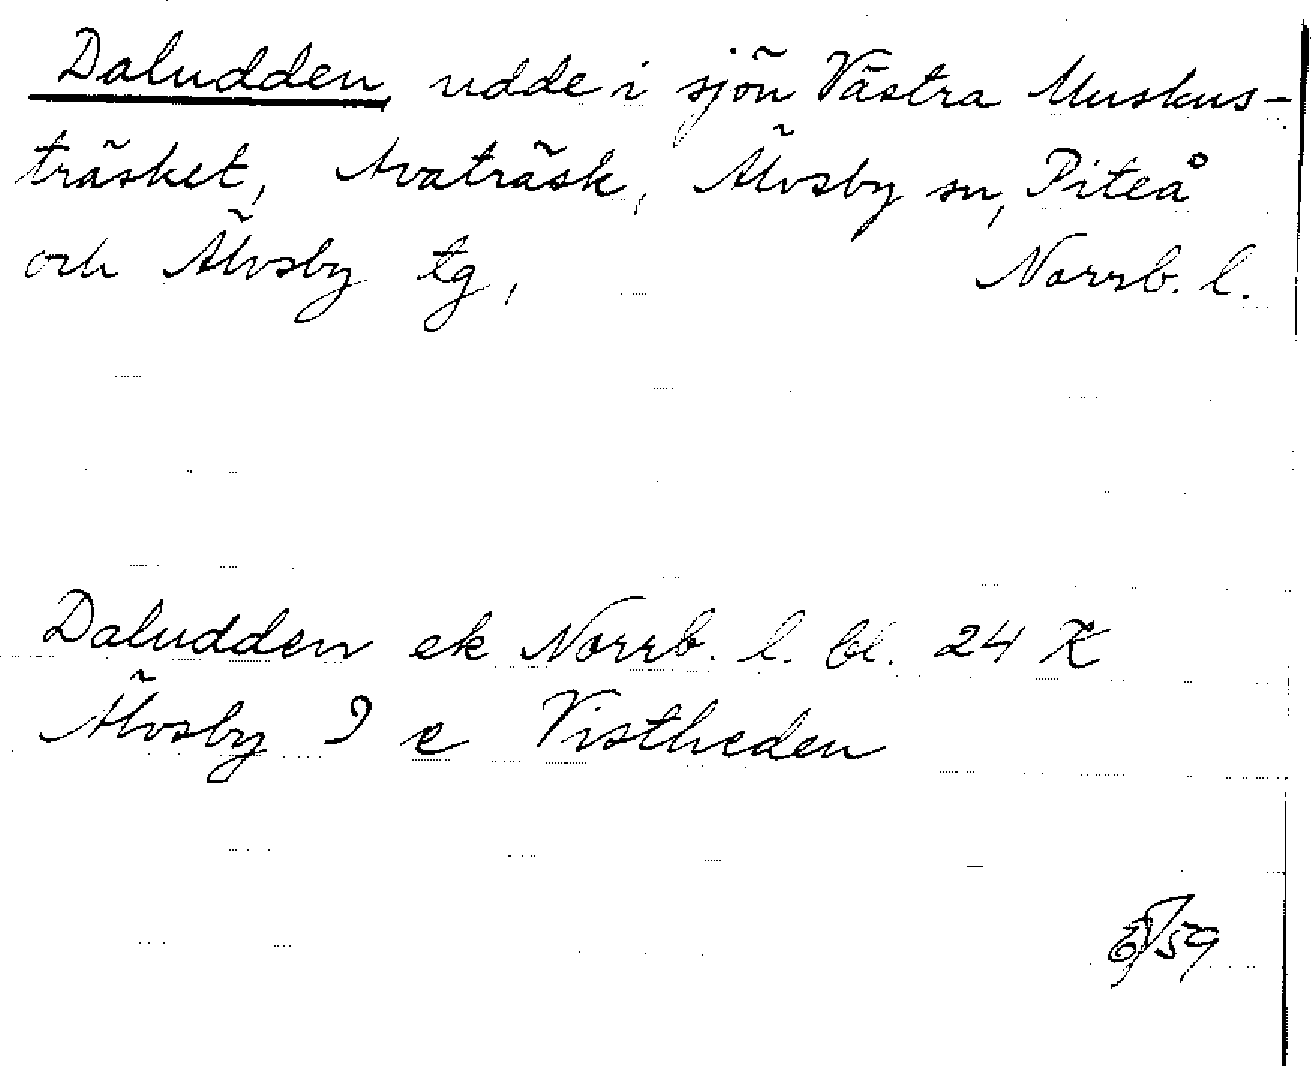 Daludden, udde i sjön Västra Muskus-
träsket, Avaträsk, Älvsby sn, Piteå
och Älvsby tg, Norrb. l.
Daludden ek Norrb. l. bl. 24 K
Älvsby 9 e Vistheden